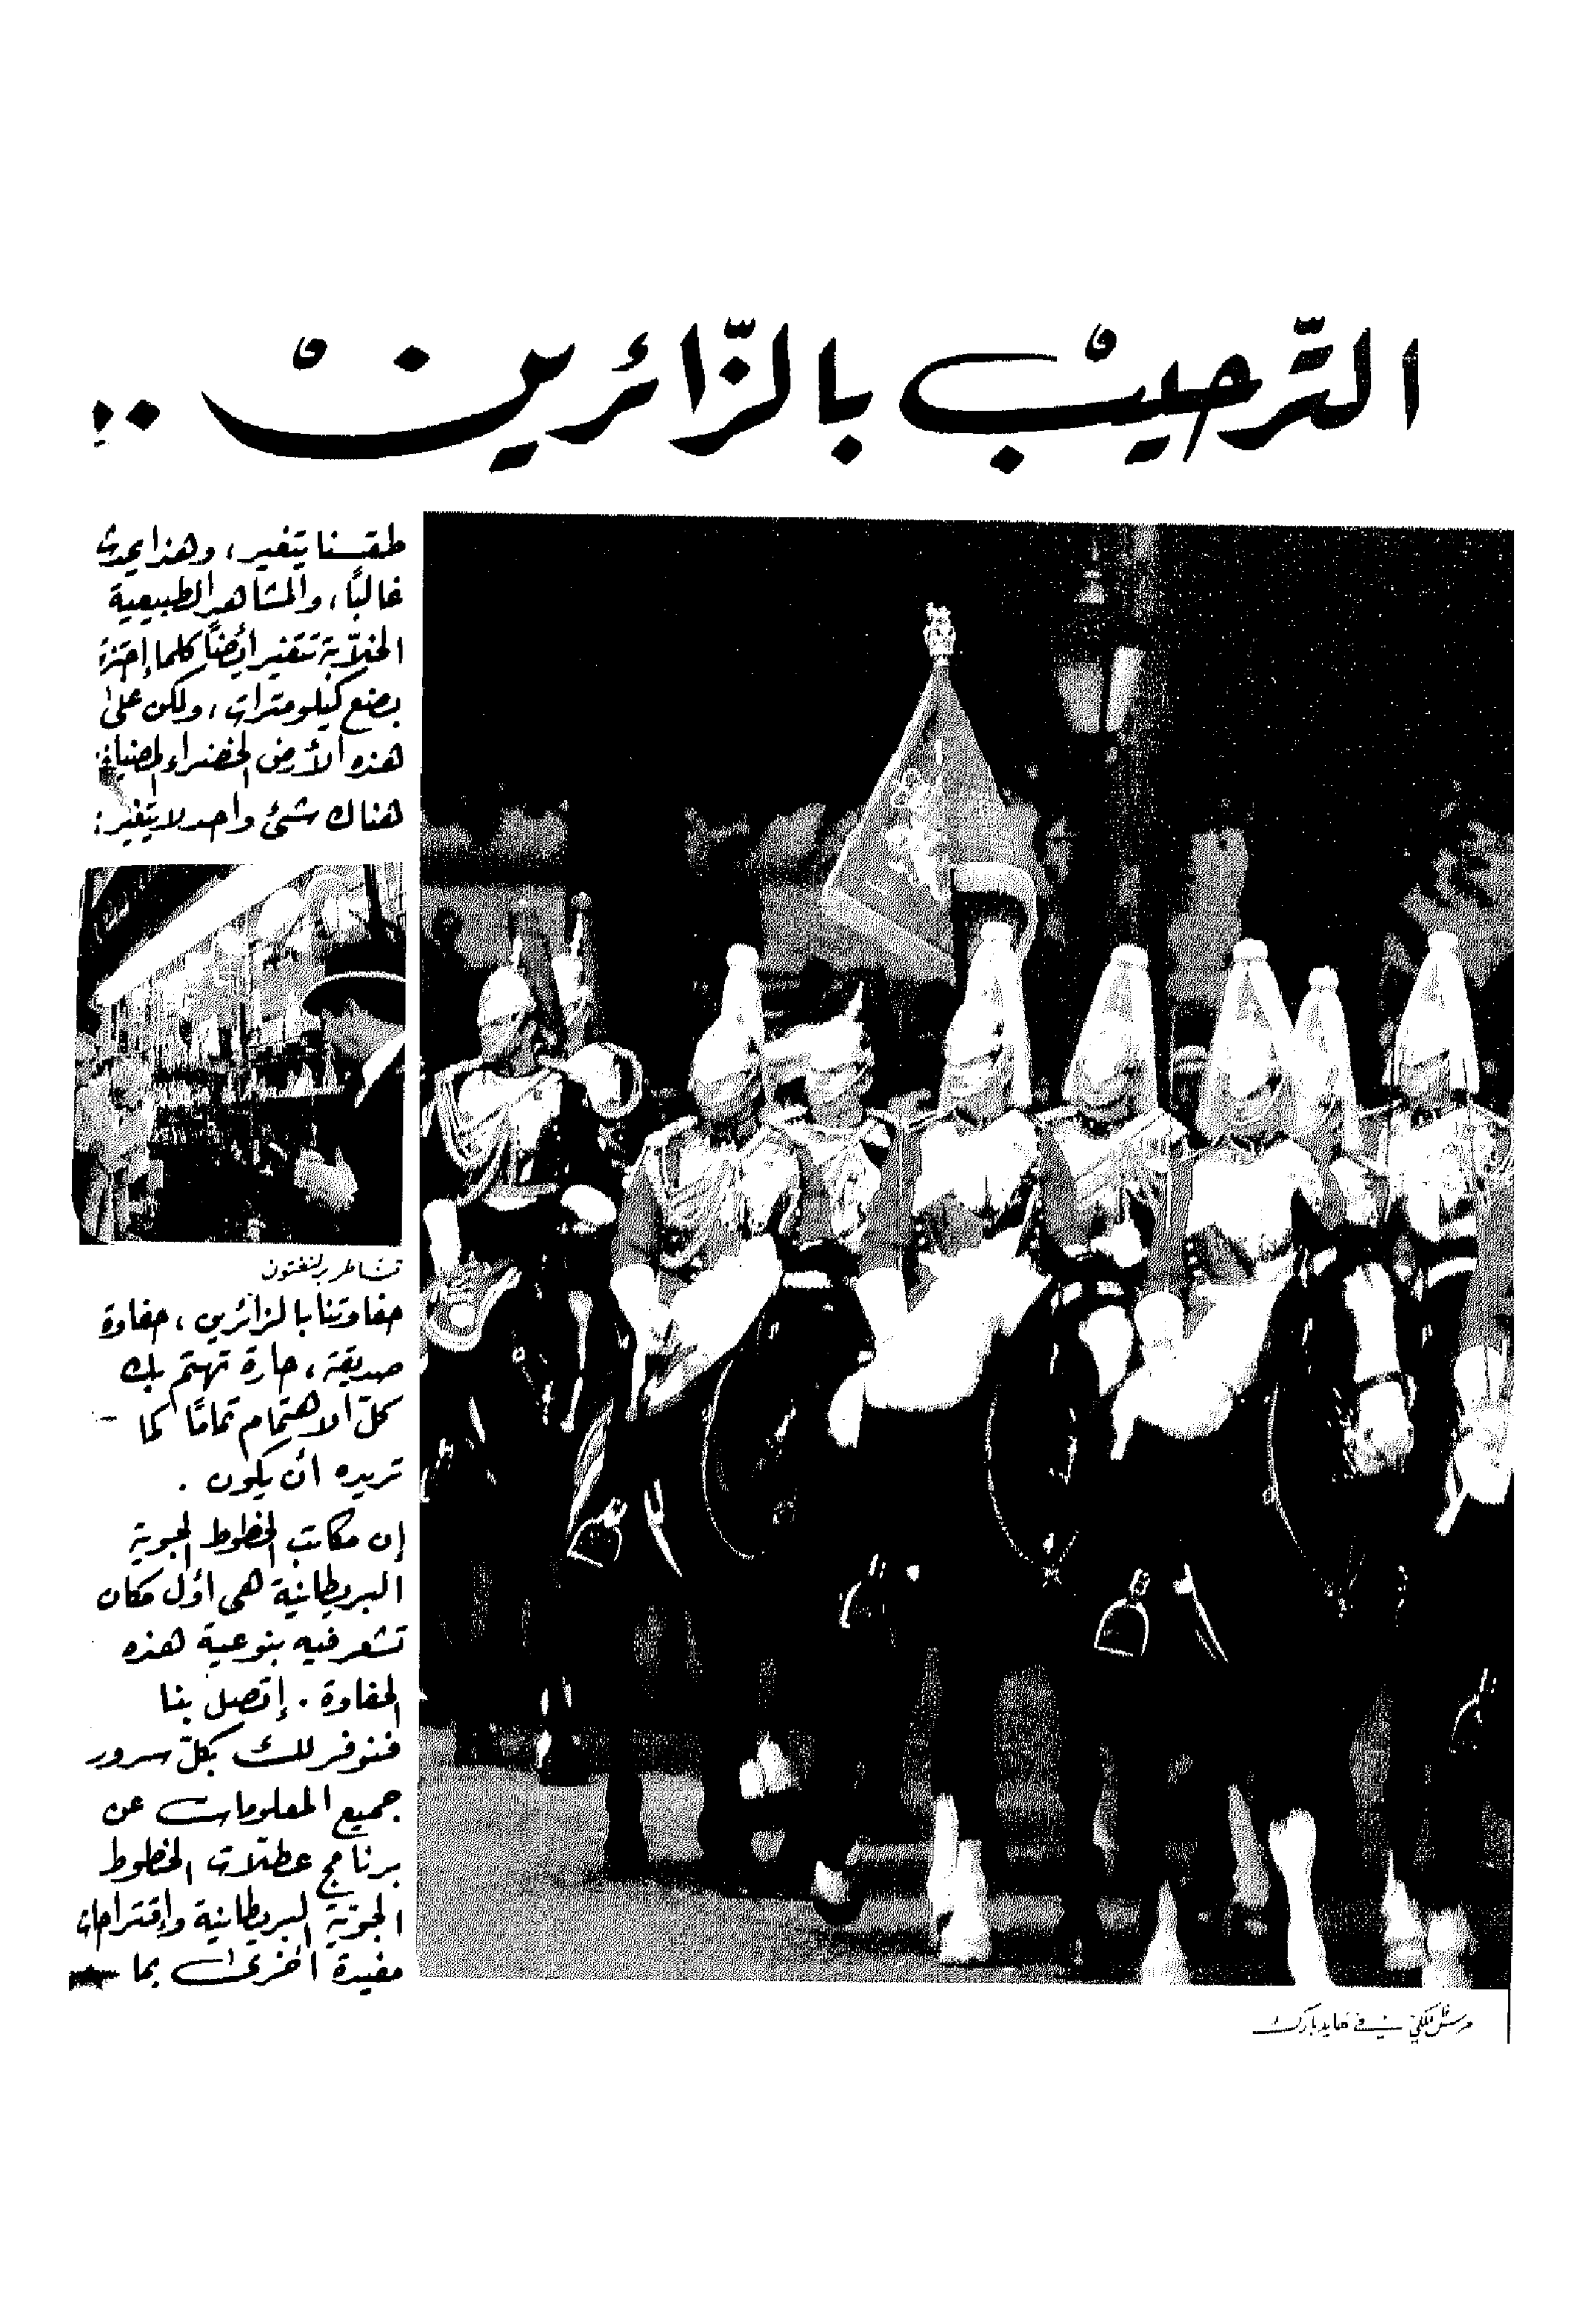 الترحيب بالزائرين ..
طقسنا يتغير، وهذا يحدث
غالبًا، والمشاهد الطبيعية
الخلّابة تتغير أيضًا كلما إجتزت
بضع كيلومترات، ولكن على
هذه الأرض الخضراء المضيافة
هناك شئ واحد لا يتغير:
حفاوتنا بالزائرين، حفاوة
صديقة، حارة تهتم بك
كلّ الاهتمام تمامًا كما
تريده أن يكون.
إن مكاتب الخطوط الجوية
البريطانية هي أول مكان
تشعر فيه بنوعية هذه
الحفاوة. إتصل بنا
فنوفر لك بكلّ سرور
جميع المعلومات عن
برنامج عطلات الخطوط
الجوّية البريطانية وإقتراحات
مفيدة أخرى بما
في هايد بارك